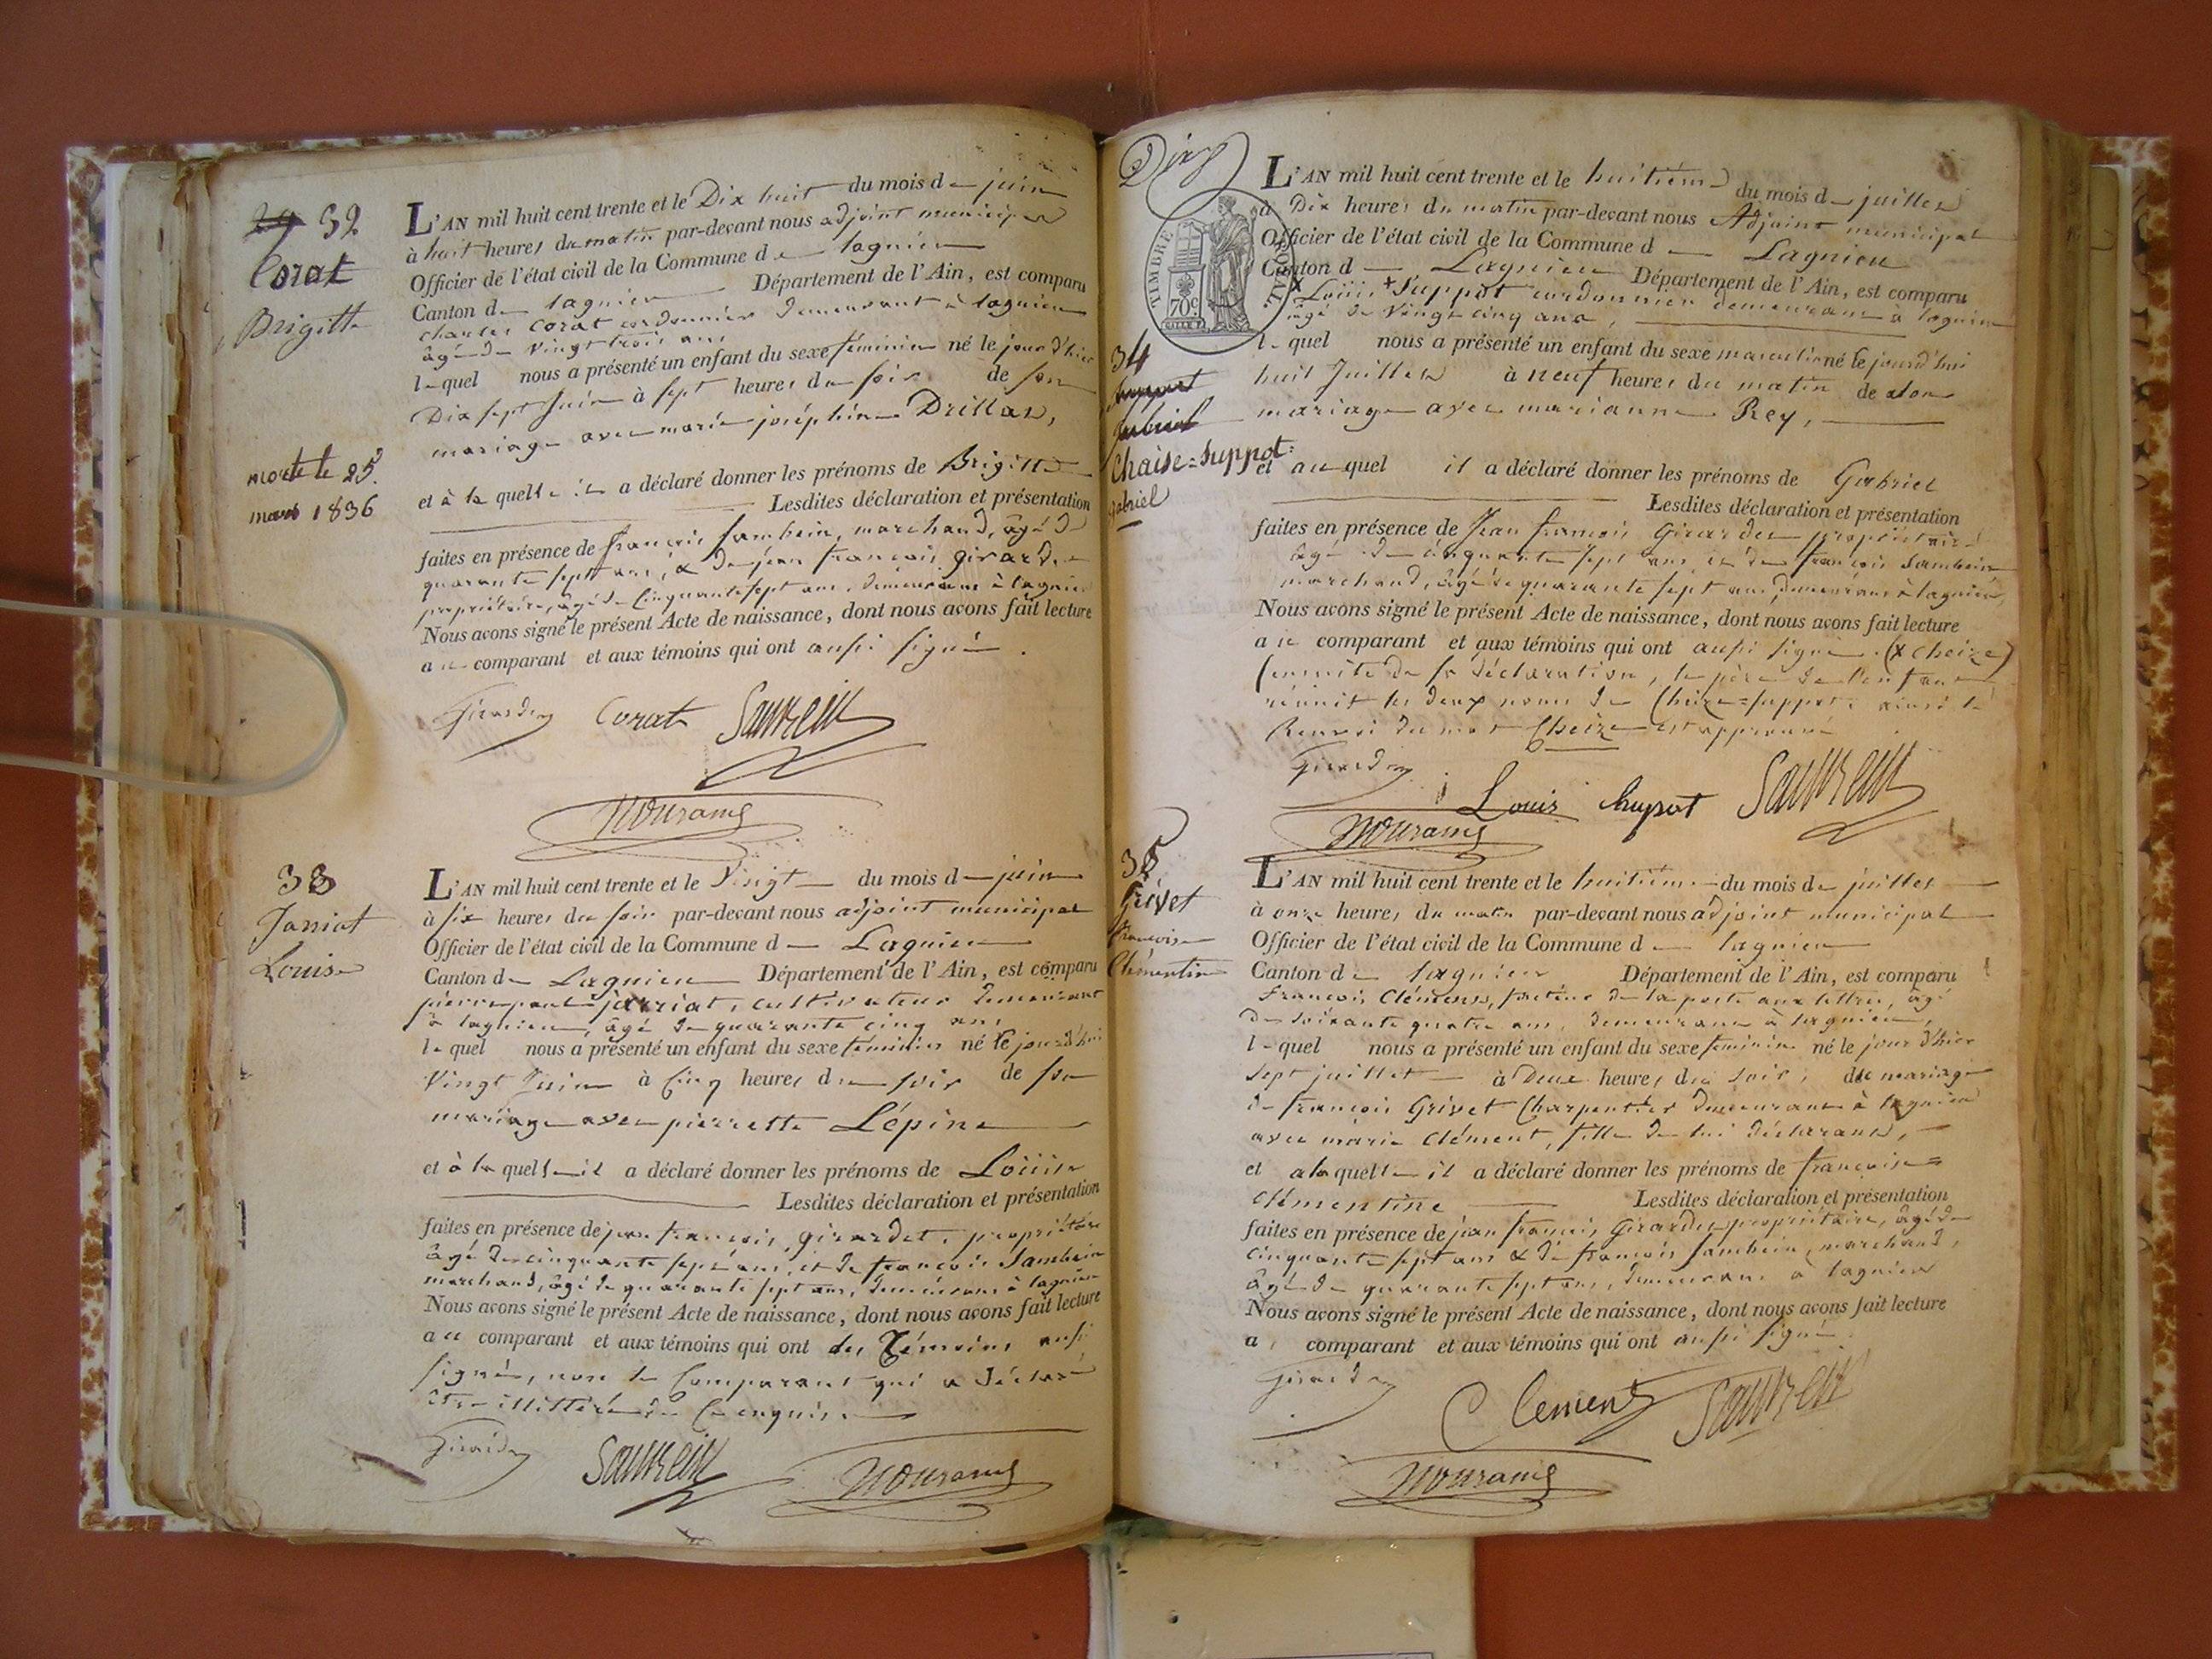 29 32
Corat
Brigitte
morte le 25
mars 1836
L'AN mil huit cent trente et le Dix huit du mois de juin
à huit heures du matin par-devant nous adjoint municipal
Officier de l'état civil de la Commune de lagnieu
Canton de lagnieu Département de l'Ain, est comparu
charles Corat cordonnier demeurant à lagnieu
âgé de vingt trois ans
lequel nous a présenté un enfant du sexe féminin né le jour d'hier
Dix sept juin à sept heures du soir de son
mariage avec marie joséphine Drillat,
et à laquelle il a déclaré donner les prénoms de Brigitte
Lesdites déclaration et présentation
faites en présence de françois Sambein, marchand, âgé de
quarante sept ans, & de jean françois girardet
propriétaire, âgé de Cinquante sept ans, demeurans à lagnieu
Nous avons signé le présent Acte de naissance, dont nous avons fait lecture
au comparant et aux témoins qui ont aussi signé.
Girardet Corat
33
Jarriat
Louise
L'AN mil huit cent trente et le Vingt du mois de juin
à six heures du soir par-devant nous adjoint municipal
Officier de l'état civil de la Commune de Lagnieu
Canton de Lagnieu Département de l'Ain, est comparu
pierre paul jarriat, cultivateur demeurant
à lagnieu, âgé de quarante cinq ans
lequel nous a présenté un enfant du sexe féminin né le jourd'hui
Vingt Juin à Cinq heures du soir de son
mariage avec pierrette Lépine
et à laquelle il a déclaré donner les prénoms de Loüise
Lesdites déclaration et présentation
faites en présence de jean françois girardet, propriétaire
âgé de cinquante sept ans, et de françois Sambein
marchand, âgé de quarante sept ans, demeurans à lagnieu
Nous avons signé le présent Acte de naissance, dont nous avons fait lecture
au comparant et aux témoins qui ont des Témoins aussi
signé, non le Comparant qui a déclaré
être illittéré de ce enquis.
Girardet
Dix
TIMBRE ROYAL
70c
34
Suppot
Gabriel
Chaise=Suppot
Gabriel
L'AN mil huit cent trente et le huitième du mois de juillet
à Dix heures du matin par-devant nous Adjoint municipal
Officier de l'état civil de la Commune de Lagnieu
Canton de Lagnieu Département de l'Ain, est comparu
x Loüis + Suppot cordonnier demeurant à lagnieu
âgé de vingt cinq ans,
lequel nous a présenté un enfant du sexe masculin né le jourd'hui
huit Juillet à neuf heures du matin de son
mariage avec marianne Rey,
et auquel il a déclaré donner les prénoms de Gabriel
Lesdites déclaration et présentation
faites en présence de Jean françois Girardet propriétaire
âgé de cinquante sept ans, et de françois Sambein
marchand, âgé de quarante sept ans, demeurans à lagnieu,
Nous avons signé le présent Acte de naissance, dont nous avons fait lecture
au comparant et aux témoins qui ont aussi signé. (x Cheize)
(ensuite de sa déclaration, le père de l'enfant
réunit les deux noms de Cheize=suppot; ainsi le
Renvoi du mot Cheize est approuvé
Girardet
Louis
35
Grivet
françoise
Clémentine
L'AN mil huit cent trente et le huitième du mois de juillet
à onze heures du matin par-devant nous adjoint municipal
Officier de l'état civil de la Commune de lagnieu
Canton de lagnieu Département de l'Ain, est comparu
François Clément, facteur de la poste aux lettres, âgé
de soixante quatre ans, demeurant à lagnieu,
lequel nous a présenté un enfant du sexe féminin né le jour d'hier
sept juillet à Deux heures du soir, du mariage
de françois Grivet Charpentier demeurant à lagnieu
avec marie Clément, fille de lui déclarant,
et a laquelle il a déclaré donner les prénoms de françoise=
clémentine Lesdites déclaration et présentation
faites en présence de jean françois Girardet propriétaire, âgé de
cinquante sept ans & de françois Sambein marchand,
âgé de quarante sept ans, demeurans à lagnieu
Nous avons signé le présent Acte de naissance, dont nous avons fait lecture
a comparant et aux témoins qui ont aussi signé
Girardet
Clement